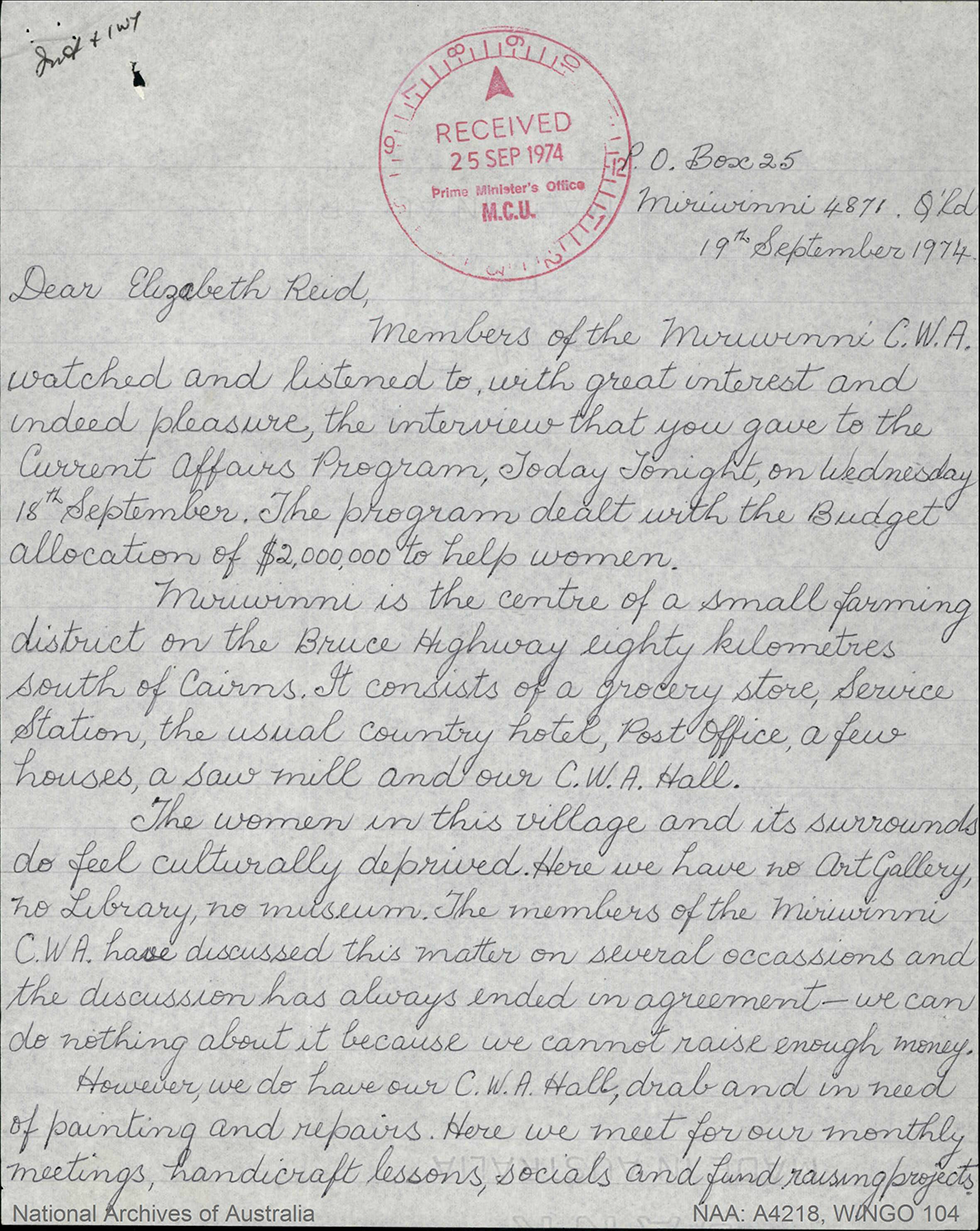 RECEIVED
25 SEP 1974
Prime Minister's Office
M.C.U.
P. O. Box 25
Miriwinni 4871. Q'ld
19th September 1974.
Dear Elizabeth Reid,
Members of the Miriwinni C.W.A.
watched and listened to, with great interest and
indeed pleasure, the interview that you gave to the
Current Affairs Program, Today Tonight, on Wednesday
18th September. The program dealt with the Budget
allocation of $2,000,000 to help women.
Miriwinni is the centre of a small farming
district on the Bruce Highway eighty kilometres
south of Cairns. It consists of a grocery store, Service
Station, the usual country hotel, Post Office, a few
houses, a saw mill and our C.W.A. Hall.
The women in this village and its surrounds
do feel culturally deprived. Here we have no Art Gallery,
no Library, no museum. The members of the Miriwinni
C.W.A. have discussed this matter on several occassions and
the discussion has always ended in agreement — we can
do nothing about it because we cannot raise enough money.
However, we do have our C.W.A. Hall, drab and in need
of painting and repairs. Here we meet for our monthly
meetings, handicraft lessons, socials and fund raising projects
National Archives of Australia
NAA: A4218, W/NGO 104